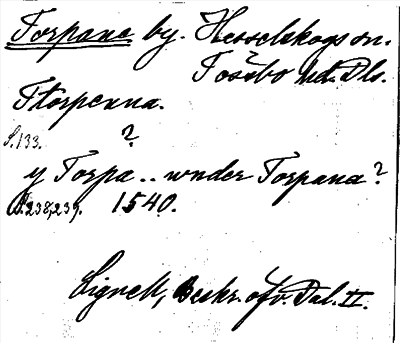 Torpane by. Hesselskogs sn.
Tössbo hd. Dls.
Ttorpenna.
S. 133.
?
y Torpa.. wnder Torpana?
238, 239. 1540.
Lignell, Beskr. öfv. Dal. II.